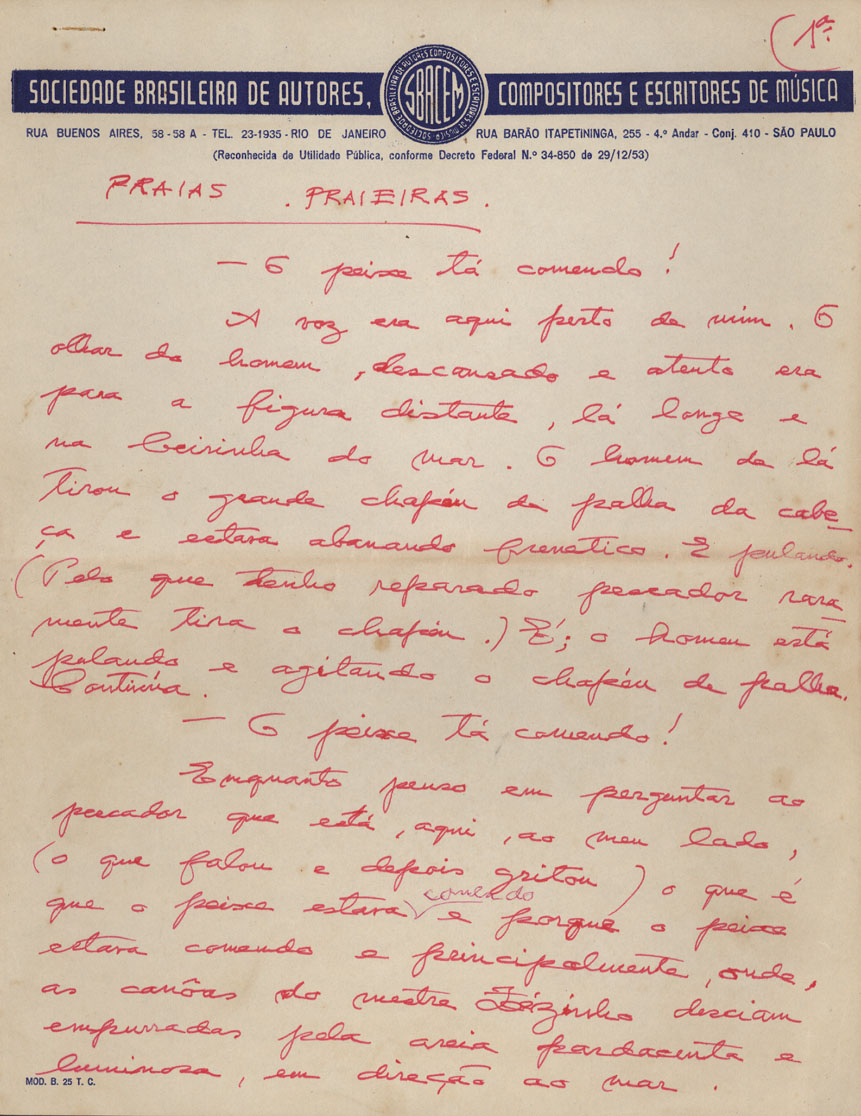 1ª
SOCIEDADE BRASILEIRA DE AUTORES, COMPOSITORES E ESCRITORES DE MÚSICA
SBACEM
SOCIEDADE BRASILEIRA DE AUTORES COMPOSITORES E ESCRITORES DE MÚSICA
RUA BUENOS AIRES, 58-58 A - TEL. 23-1935 - RIO DE JANEIRO RUA BARÃO ITAPETININGA, 255 - 4.º Andar - Conj. 410 - SÃO PAULO
(Reconhecida de Utilidado Pública, conforme Decreto Federal N.º 34-850 de 29/12/53)
PRAIAS . PRAIEIRAS.
— O peixe tá comendo!
A voz era aqui perto de mim. O
olhar do homem, descansado e atento era
para a figura distante, lá longe e
na beirinha do mar. O homem de lá
tirou o grande chapéu de palha da cabe-
ça e estava abanando frenético. E pulando.
(Pelo que tenho reparado pescador rara-
mente tira o chapéu.) É; o homem está
pulando e agitando o chapéu de palha.
Continúa.
— O peixe tá comendo!
Enquanto penso em perguntar ao
pescador que está, aqui, ao meu lado,
(o que falou e depois gritou) o que é
que o peixe estava comendo e porquê o peixe
estava comendo e principalmente, onde,
as canôas do mestre Zézinho desciam
empurradas pela areia pardacenta e
luminosa, em direção ao mar.
MOD. B. 25 T. C.